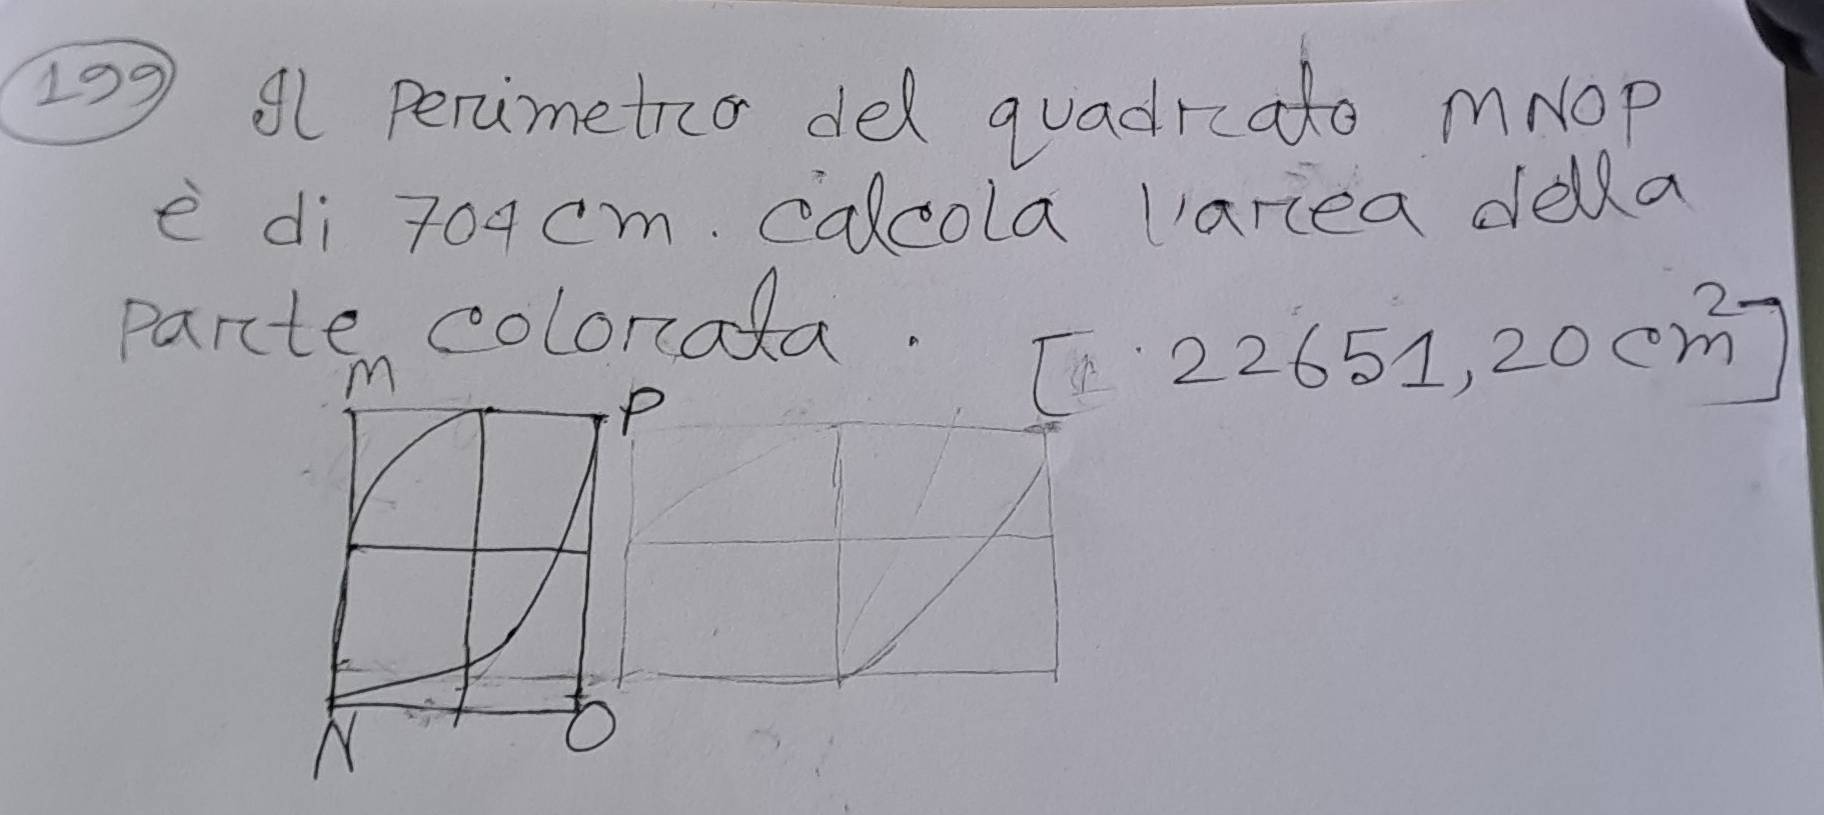 199 Il perimetro del quadrato MNOP
è di 704 cm. calcola l'area della
parte colorata. [22651,20 cm²]
M
P
N
O